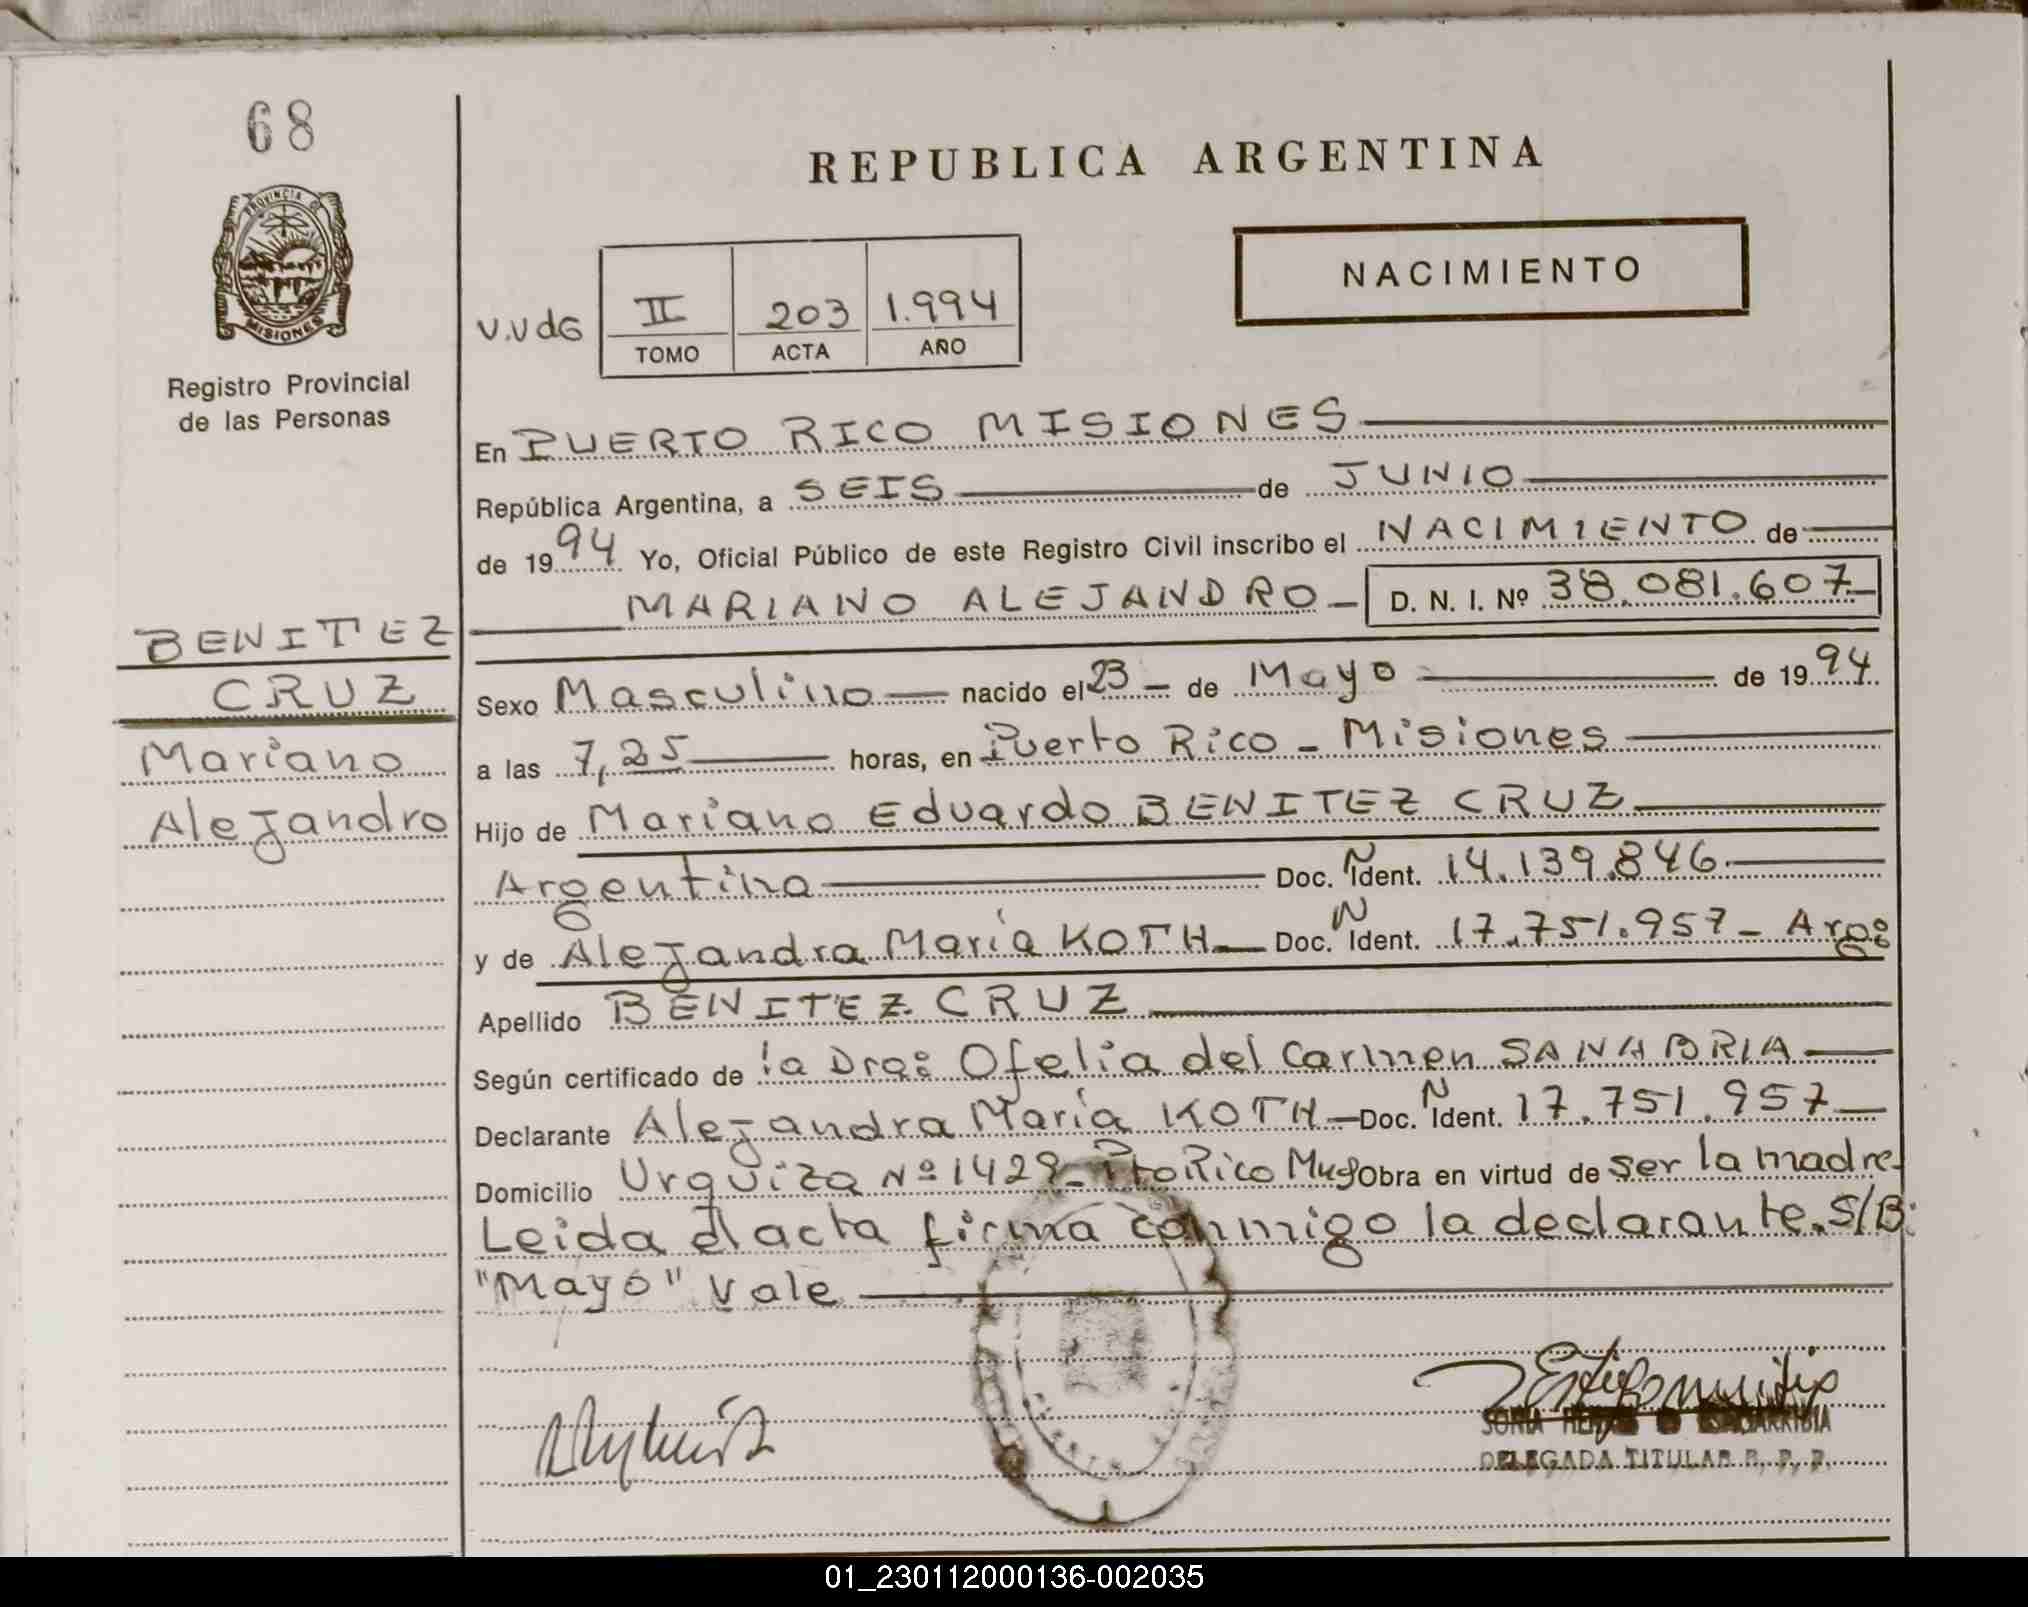 68
REPUBLICA ARGENTINA
PROVINCIA D
MISIONES
NACIMIENTO
V.VdG II 203 1.994
TOMO ACTA AÑO
Registro Provincial
de las Personas
En PUERTO RICO MISIONES
República Argentina, a SEIS de JUNIO
de 1994 Yo, Oficial Público de este Registro Civil inscribo el NACIMIENTO de
MARIANO ALEJANDRO D. N. I. Nº 38.081.607
BENITEZ
CRUZ
Mariano
Alejandro
Sexo Masculino nacido el 23 de Mayo de 1994
a las 7,25 horas, en Puerto Rico - Misiones
Hijo de Mariano Eduardo BENITEZ CRUZ
Argentino Doc. N Ident. 14.139.846
y de Alejandra María KOTH Doc. N Ident. 17.751.957 - Arg:
Apellido BENITEZ CRUZ
Según certificado de la Dra: Ofelia del Carmen SANABRIA
Declarante Alejandra María KOTH Doc. N Ident. 17.751.957
Domicilio Urquiza Nº 1429 - Pto Rico Mns Obra en virtud de ser la madre
Leida el acta firma conmigo la declarante. S/B:
"Mayo" Vale
SONIA
DELEGADA TITULAR R. P. P.
01_230112000136-002035